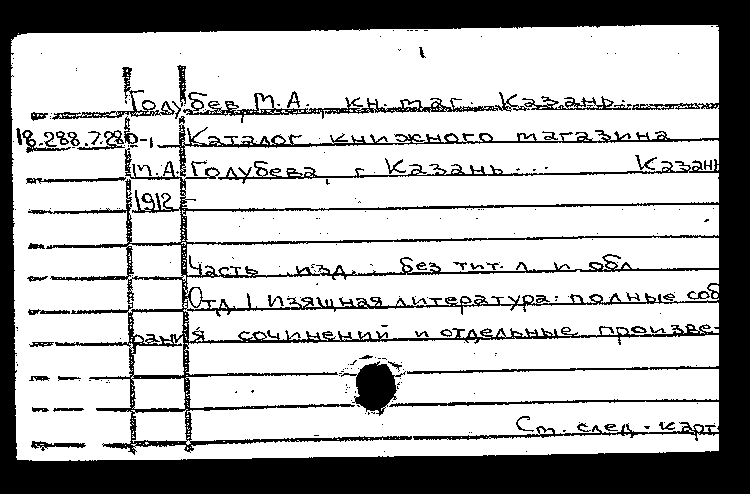 1
Голубев, М.А., кн. маг. Казань.
18.288.7.280-1 Каталог книжного магазина
М.А. Голубева, г. Казань... Казань
1912 -
Часть изд. : без тит. л. и обл.
Отд. 1. Изящная литература: полные соб
рания сочинений и отдельные произве-
См. след. карт